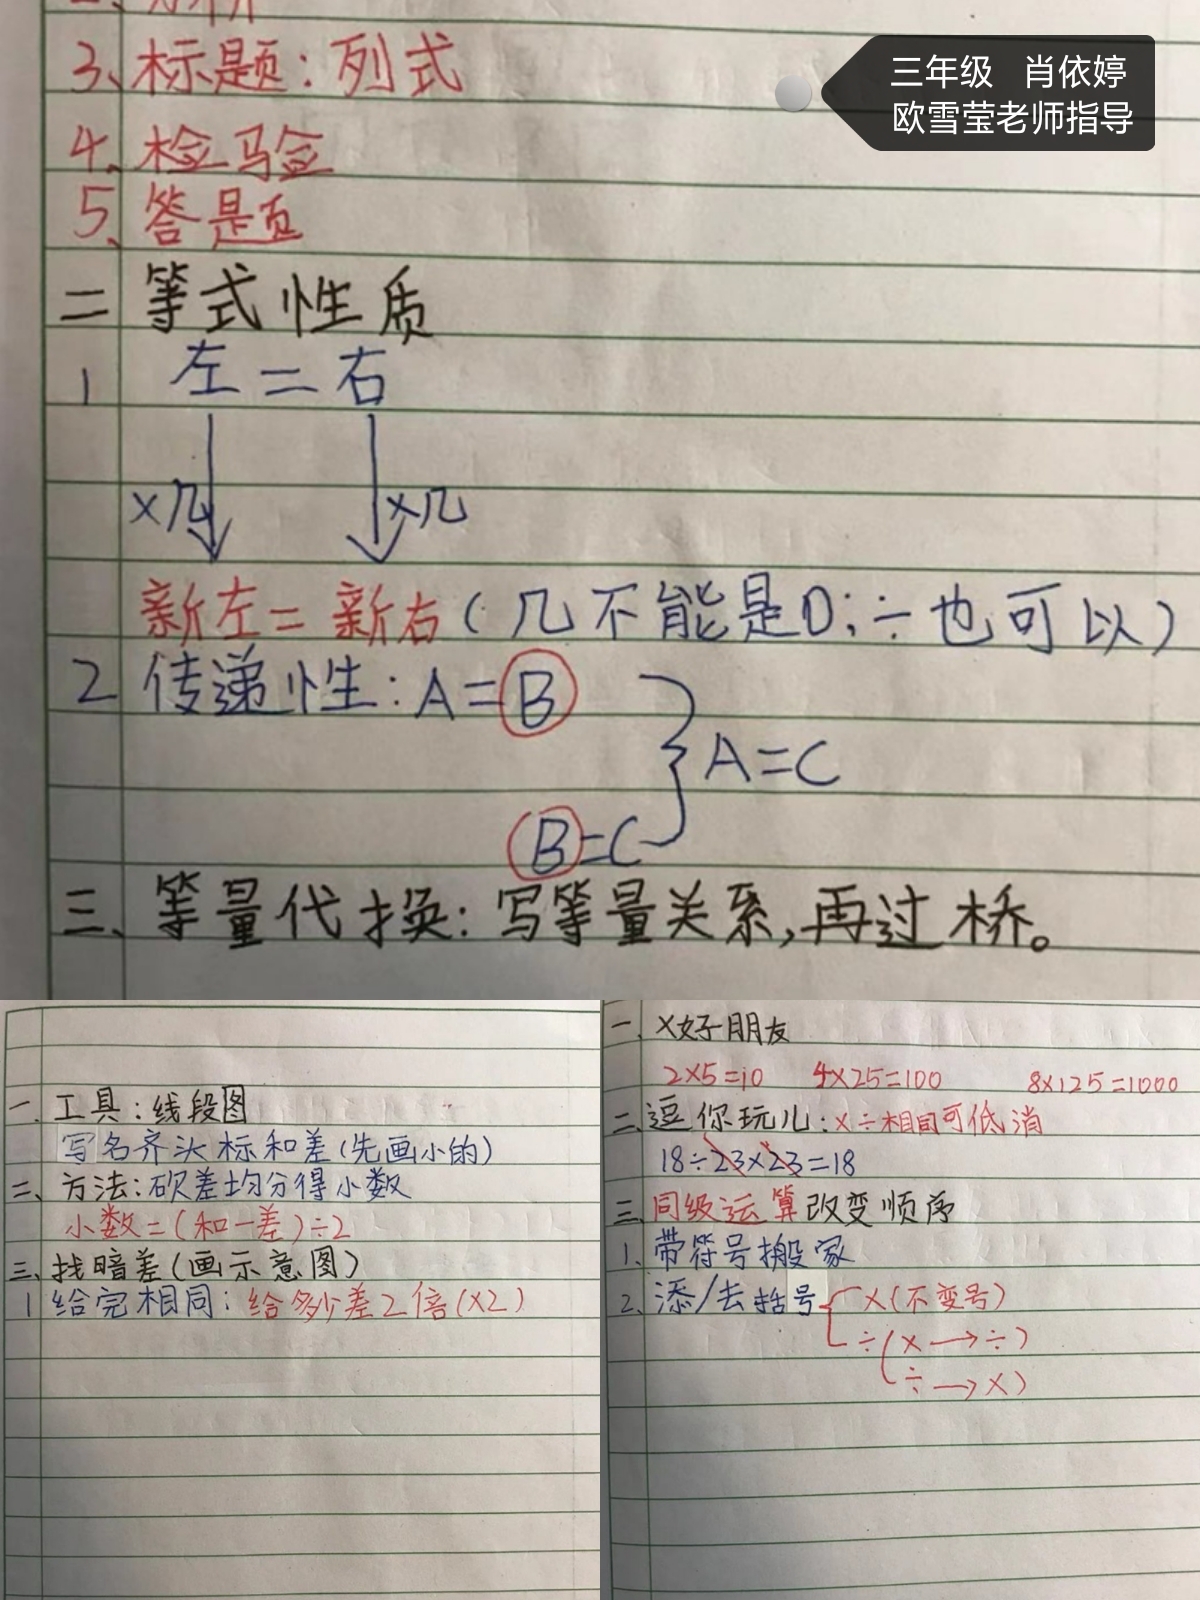 3、标题：列式
三年级 肖依婷
欧雪莹老师指导
4、检验
5、答题
二 等式性质
1 左=右
×几 ×几
新左=新右(几不能是0；÷也可以)
2 传递性：A=B
A=C
B=C
三、等量代换：写等量关系，再过桥。
一、工具：线段图
写名齐头标和差(先画小的)
二、方法：砍差均分得小数
小数=(和-差)÷2
三、找暗差(画示意图)
1 给完相同：给多少差2倍(×2)
一、×好朋友
2×5=10 4×25=100 8×125=1000
二、逗你玩儿：×÷相同可低消
18÷23×23=18
三、同级运算改变顺序
1、带符号搬家
2、添/去括号 ×(不变号)
÷(×→÷)
÷→×)